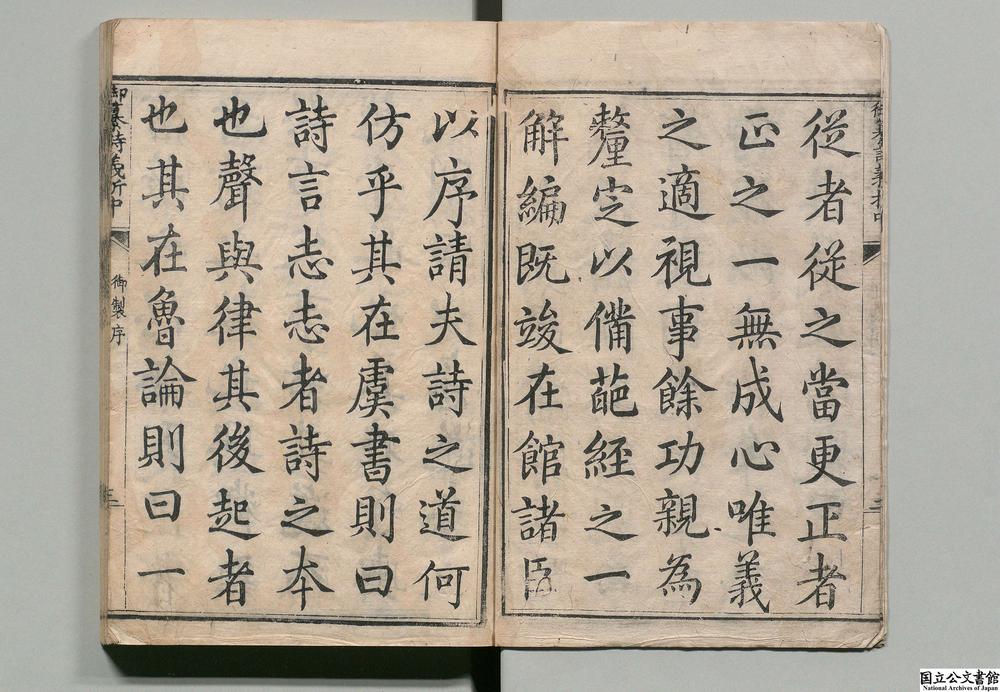 從者從之當更正者
正之一無成心唯義
之適視事餘功親為
釐定以備葩經之一
解編既竣在館諸臣
以序請夫詩之道何
仿乎其在虞書則曰
詩言志志者詩之本
也聲與律其後起者
也其在魯論則曰一
御纂詩義折中
御製序
三
国立公文書館
National Archives of Japan